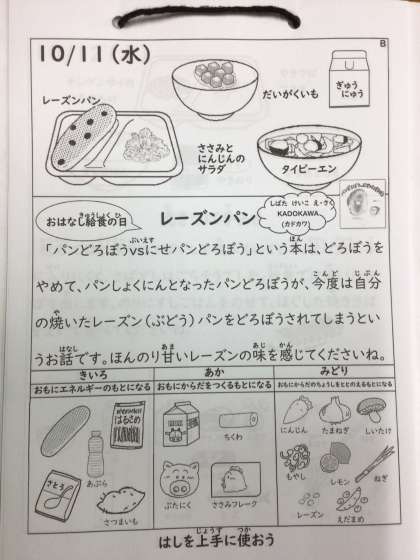 10/11(水)
B
レーズンパン
だいがくいも
ぎゅうにゅう
ささみと
にんじんの
サラダ
タイピーエン
おはなし給食の日
きゅうしょく ひ
レーズンパン
しばた けいこ え・さく
KADOKAWA
(カドカワ)
ぶいえす
ほん
「パンどろぼうvsにせパンどろぼう」という本は、どろぼうを
こんど じぶん
やめて、パンしょくにんとなったパンどろぼうが、今度は自分
や
の焼いたレーズン(ぶどう)パンをどろぼうされてしまうとい
はなし あま あじ かん
うお話です。ほんのり甘いレーズンの味を感じてくださいね。
きいろ
おもにエネルギーのもとになる
はるさめ
あぶら
さとう
さつまいも
あか
おもにからだをつくるもとになる
ちくわ
ぶたにく
ささみフレーク
みどり
おもにからだのちょうしをととのえるもとになる
にんじん
たまねぎ
しいたけ
もやし
レモン
ねぎ
レーズン
えだまめ
じょうず つか
はしを上手に使おう